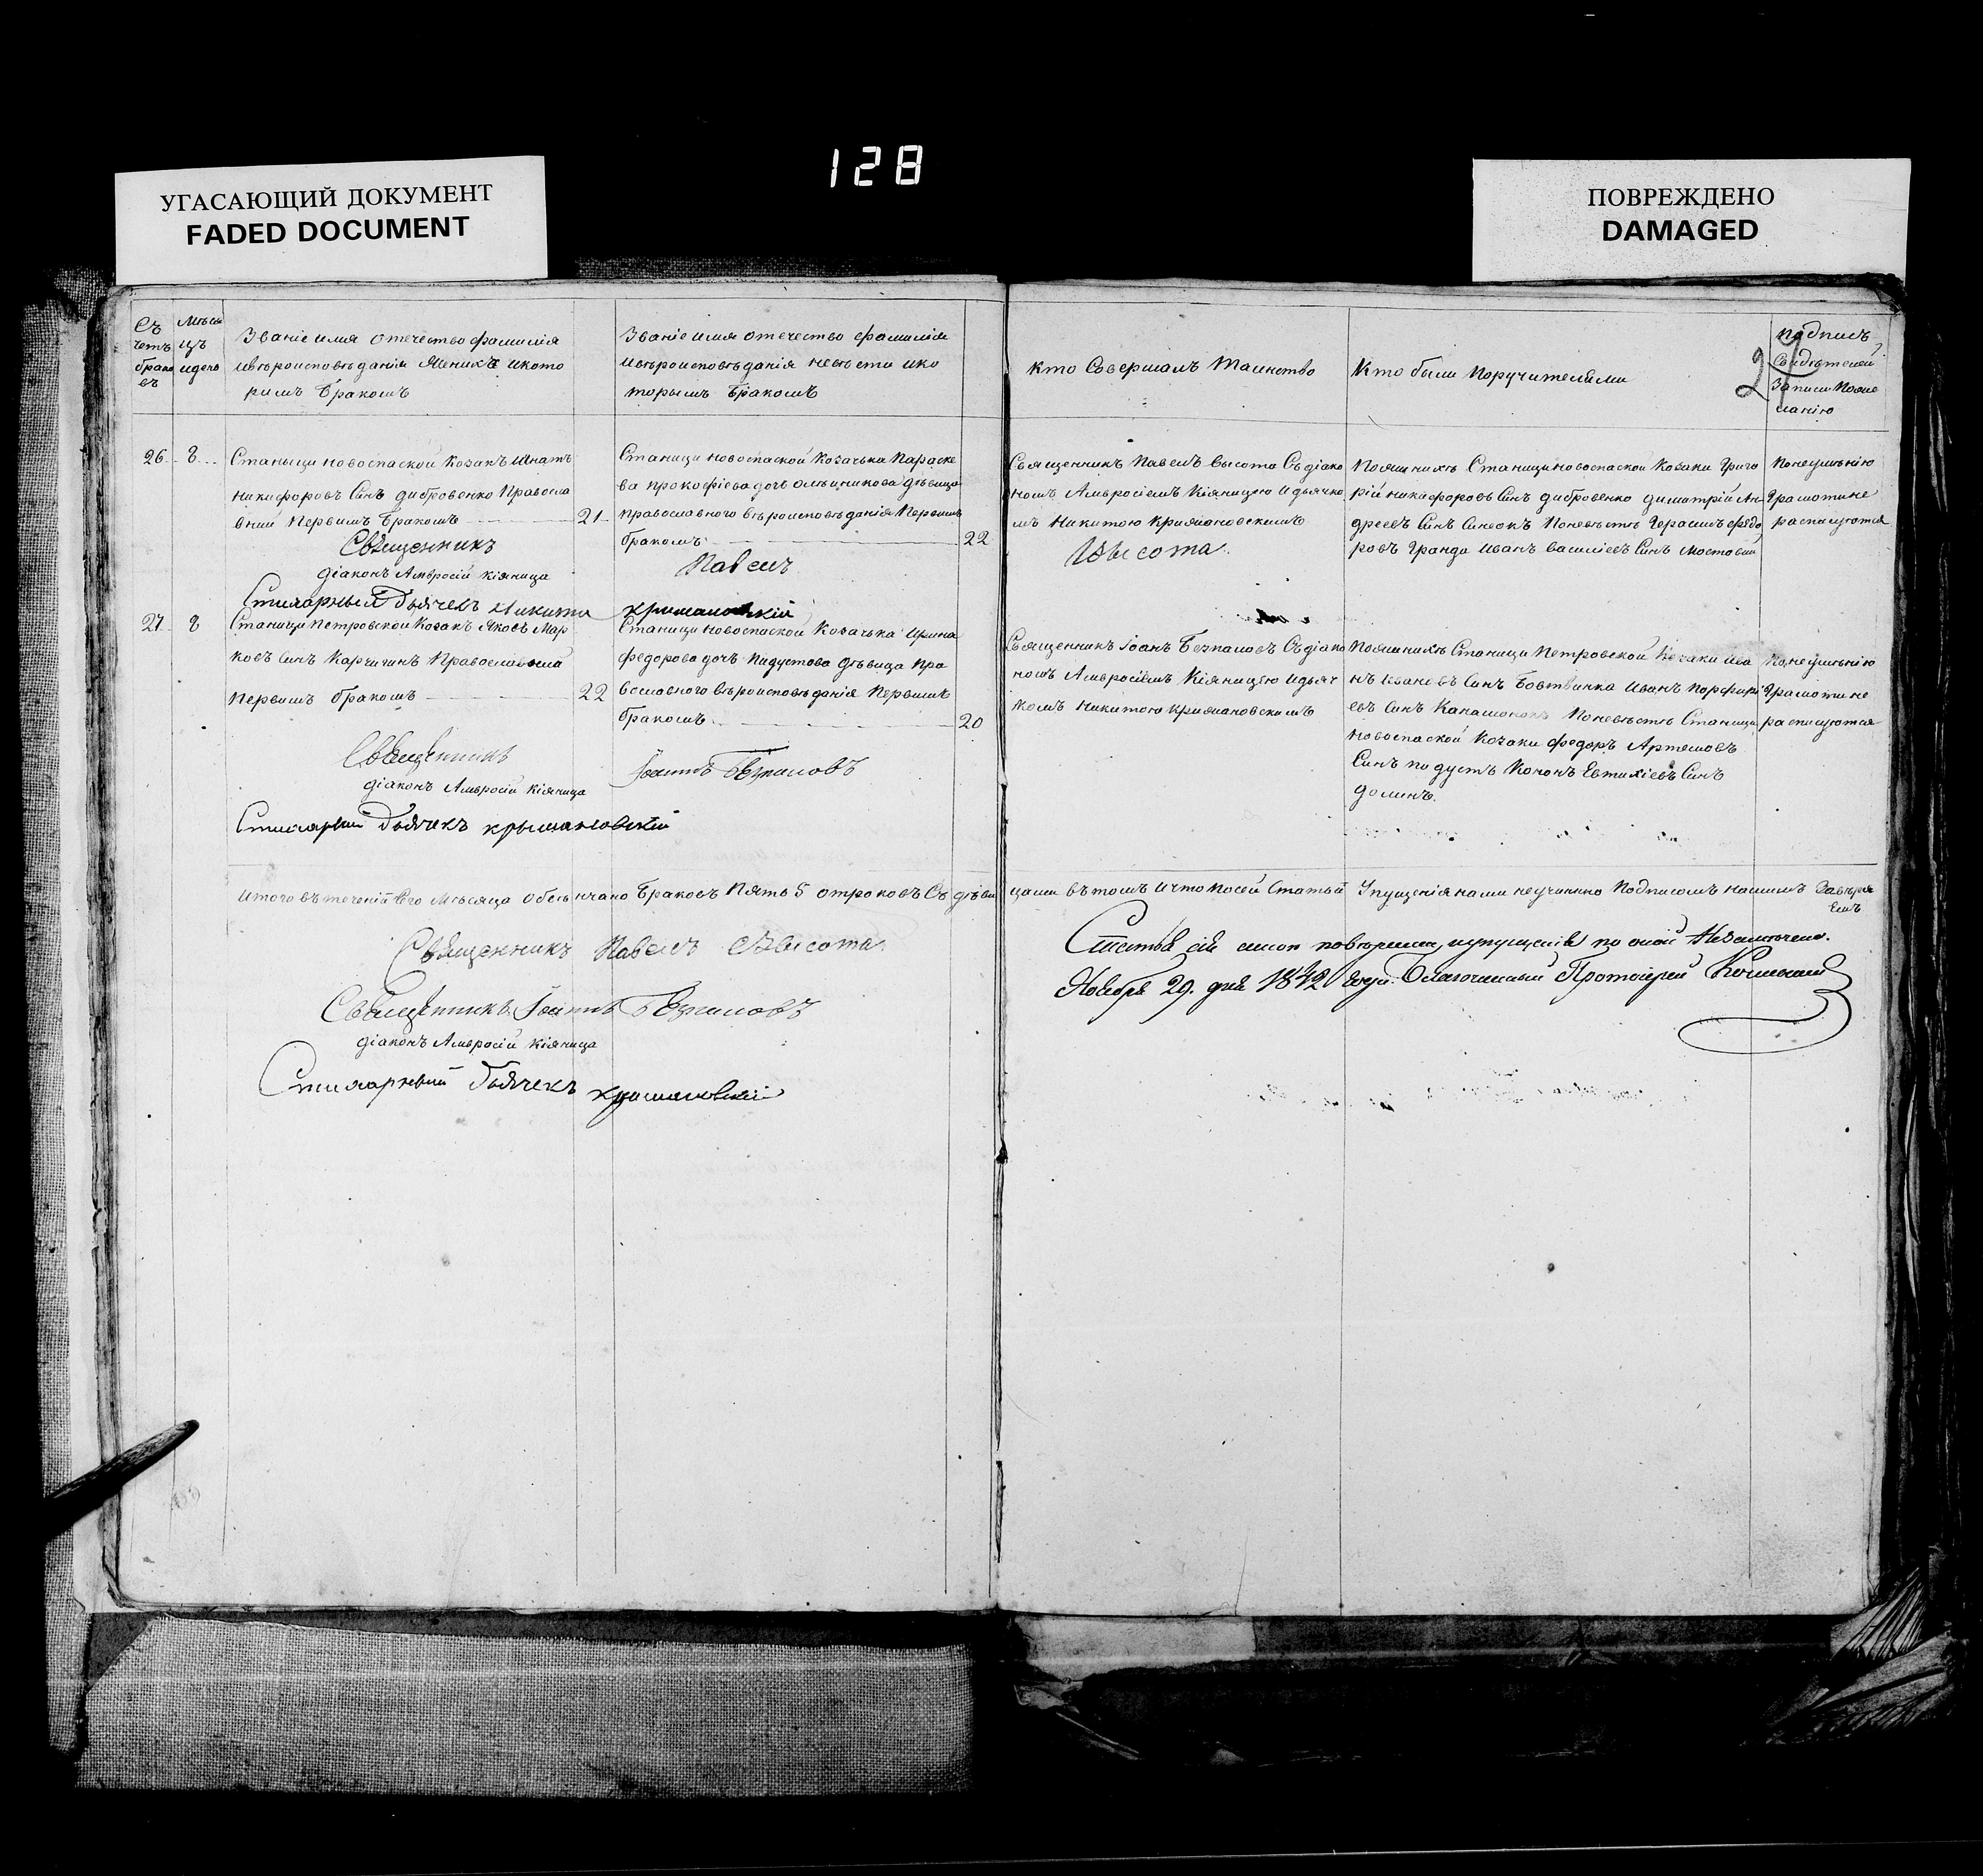 128
УГАСАЮЩИЙ ДОКУМЕНТ
FADED DOCUMENT
ПОВРЕЖДЕНО
DAMAGED
Съ
четъ
брако
въ
Мѣся
цъ
идень
Званіе имя отечество фамилія
ивѣроисповѣданія Жениха икото
римъ Бракомъ
Званіе имя отечество фамилія
ивѣроисповѣданія невѣсти ико
торымъ Бракомъ
кто Совершалъ Таинство
Кто были Поручителями
подпись
Свидѣтелей
Записи Поже
ланію
26
8
Станыци новоспаской Козакъ Игнатъ
никифоровъ Синъ дибровенко Правосла
вній Первимъ Бракомъ
21
Станици новоспаской Козачька Параске
ва прокофіева дочь олійникова дѣвица
православного вѣроисповѣданія Первимъ
бракомъ
22
Священникъ Павелъ Высота Съдіако
номъ Амвросіемъ Кіяницею идьячко
мъ Никитою Крижановскимъ
Пожинихѣ Станици новоспаской Козаки Григо
рій никифоровъ Синъ дибровенко димитрій Ан
дреевъ Синъ Синеокъ Поневѣстѣ Герасимъ федо
ровъ Гранда Иванъ василіевъ Синъ Мостовий
Понеумѣнію
Грамоти не
расписуются
Священникъ
Павелъ
Высота
діаконъ Амвросій Кіяница
Стихарный Дьячекъ Никита
крижановскій
27
8
Станици Петровской Козакъ Яковъ Мар
ковъ синъ Карчигинъ Православній
Первимъ бракомъ
22
Станици новоспаской Козачька Ирина
федорова дочь Падустова дѣвица Пра
вославного вѣроисповѣданія Первимъ
бракомъ
20
Священникъ Іоанъ Безпаловъ Съдіако
номъ Амвросіемъ Кіяницею идьяч
комъ Никитою Крижановскимъ
Пожинихѣ Станици Петровской Козаки Ива
нъ Ивановъ Синъ Бовтвинка Иванъ Порфири
евъ Синъ Поневѣстѣ Станици
новоспаской Козаки федоръ Артемовъ
Синъ падустъ Кононъ Евтихіевъ Синъ
долинъ.
Понеумѣнію
Грамоти не
расписуются
Священникъ
Іоаннъ Безпаловъ
діаконъ Амвросій Кіяница
Стихарный Дьячекъ крыжановскій
Итого въ теченій сего Мѣсяца обвѣнчано Браковъ Пять 5 отроковъ Съ дѣви
цами въ томъ ичто Посей Статьй Упущенія нами неучинино Подписомъ нашимъ Завѣря
емъ
Священникъ Павелъ Высота
Священникъ Іоаннъ Безпаловъ
діаконъ Амвросій Кіяница
Стихарный Дьячекъ крижановскій
Статья сія мною повѣрена, иупущенія по оной Незамѣчено.
Ноября 29. дня 1842 года. Благочинный Протоіерей